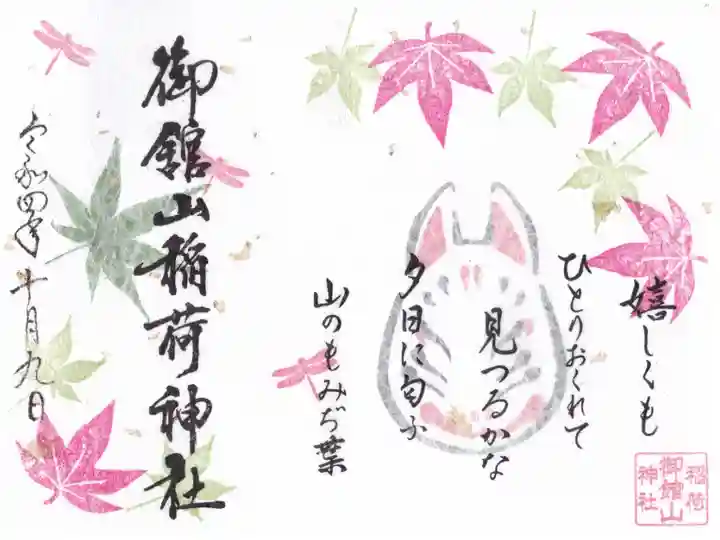 嬉しくも
ひとりおくれて
見つるかな
夕日に匂ふ
山のもみぢ葉
御舘山稲荷神社
令和四年十月九日
稲荷
御舘山
神社